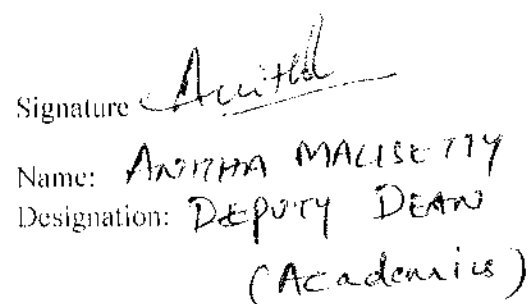 Signature Anitha
Name: ANITHA MALISETTY
Designation: DEPUTY DEAN
(Academics)